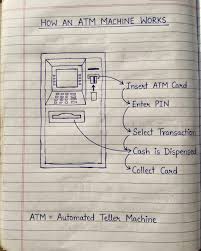 HOW AN ATM MACHINE WORKS
Insert ATM Card
Enter PIN
Select Transaction
Cash is Dispensed
Collect Card
ATM = Automated Teller Machine